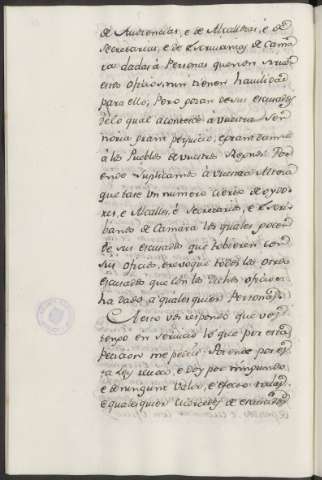 de Audiencias, e de Alcaldias, é de
Secretarias, e de Escrivanias de Cama
ra dadas á Personas que non sirven
estos oficios, nin tienen havilidad
para ello, Pero gozan de sus escusados
de lo qual acontece á Vuestra Sen
noria gram perjuicio, e gram danno
á los Pueblos de Vuestros Regnos. Por
ende Suplicamos á Vuestra Alteza
que tase un numero cierto de oydo
res, e Alcalles, é Secretarios, e Escri
banos de Camara los quales gocen
de sus escusados que tobieren con
sus oficios, e revoque todos los otros
escusados que con los dichos oficios
ha dado a qualesquier Personas.
A esto vos respondo que vos
tengo en servicio lo que por esta
peticion me pedis. Por ende por es
ta Ley revoco, e doy por ninguno,
e de ningunt valor, e efecto todas,
e qualesquier mercedes de escusados